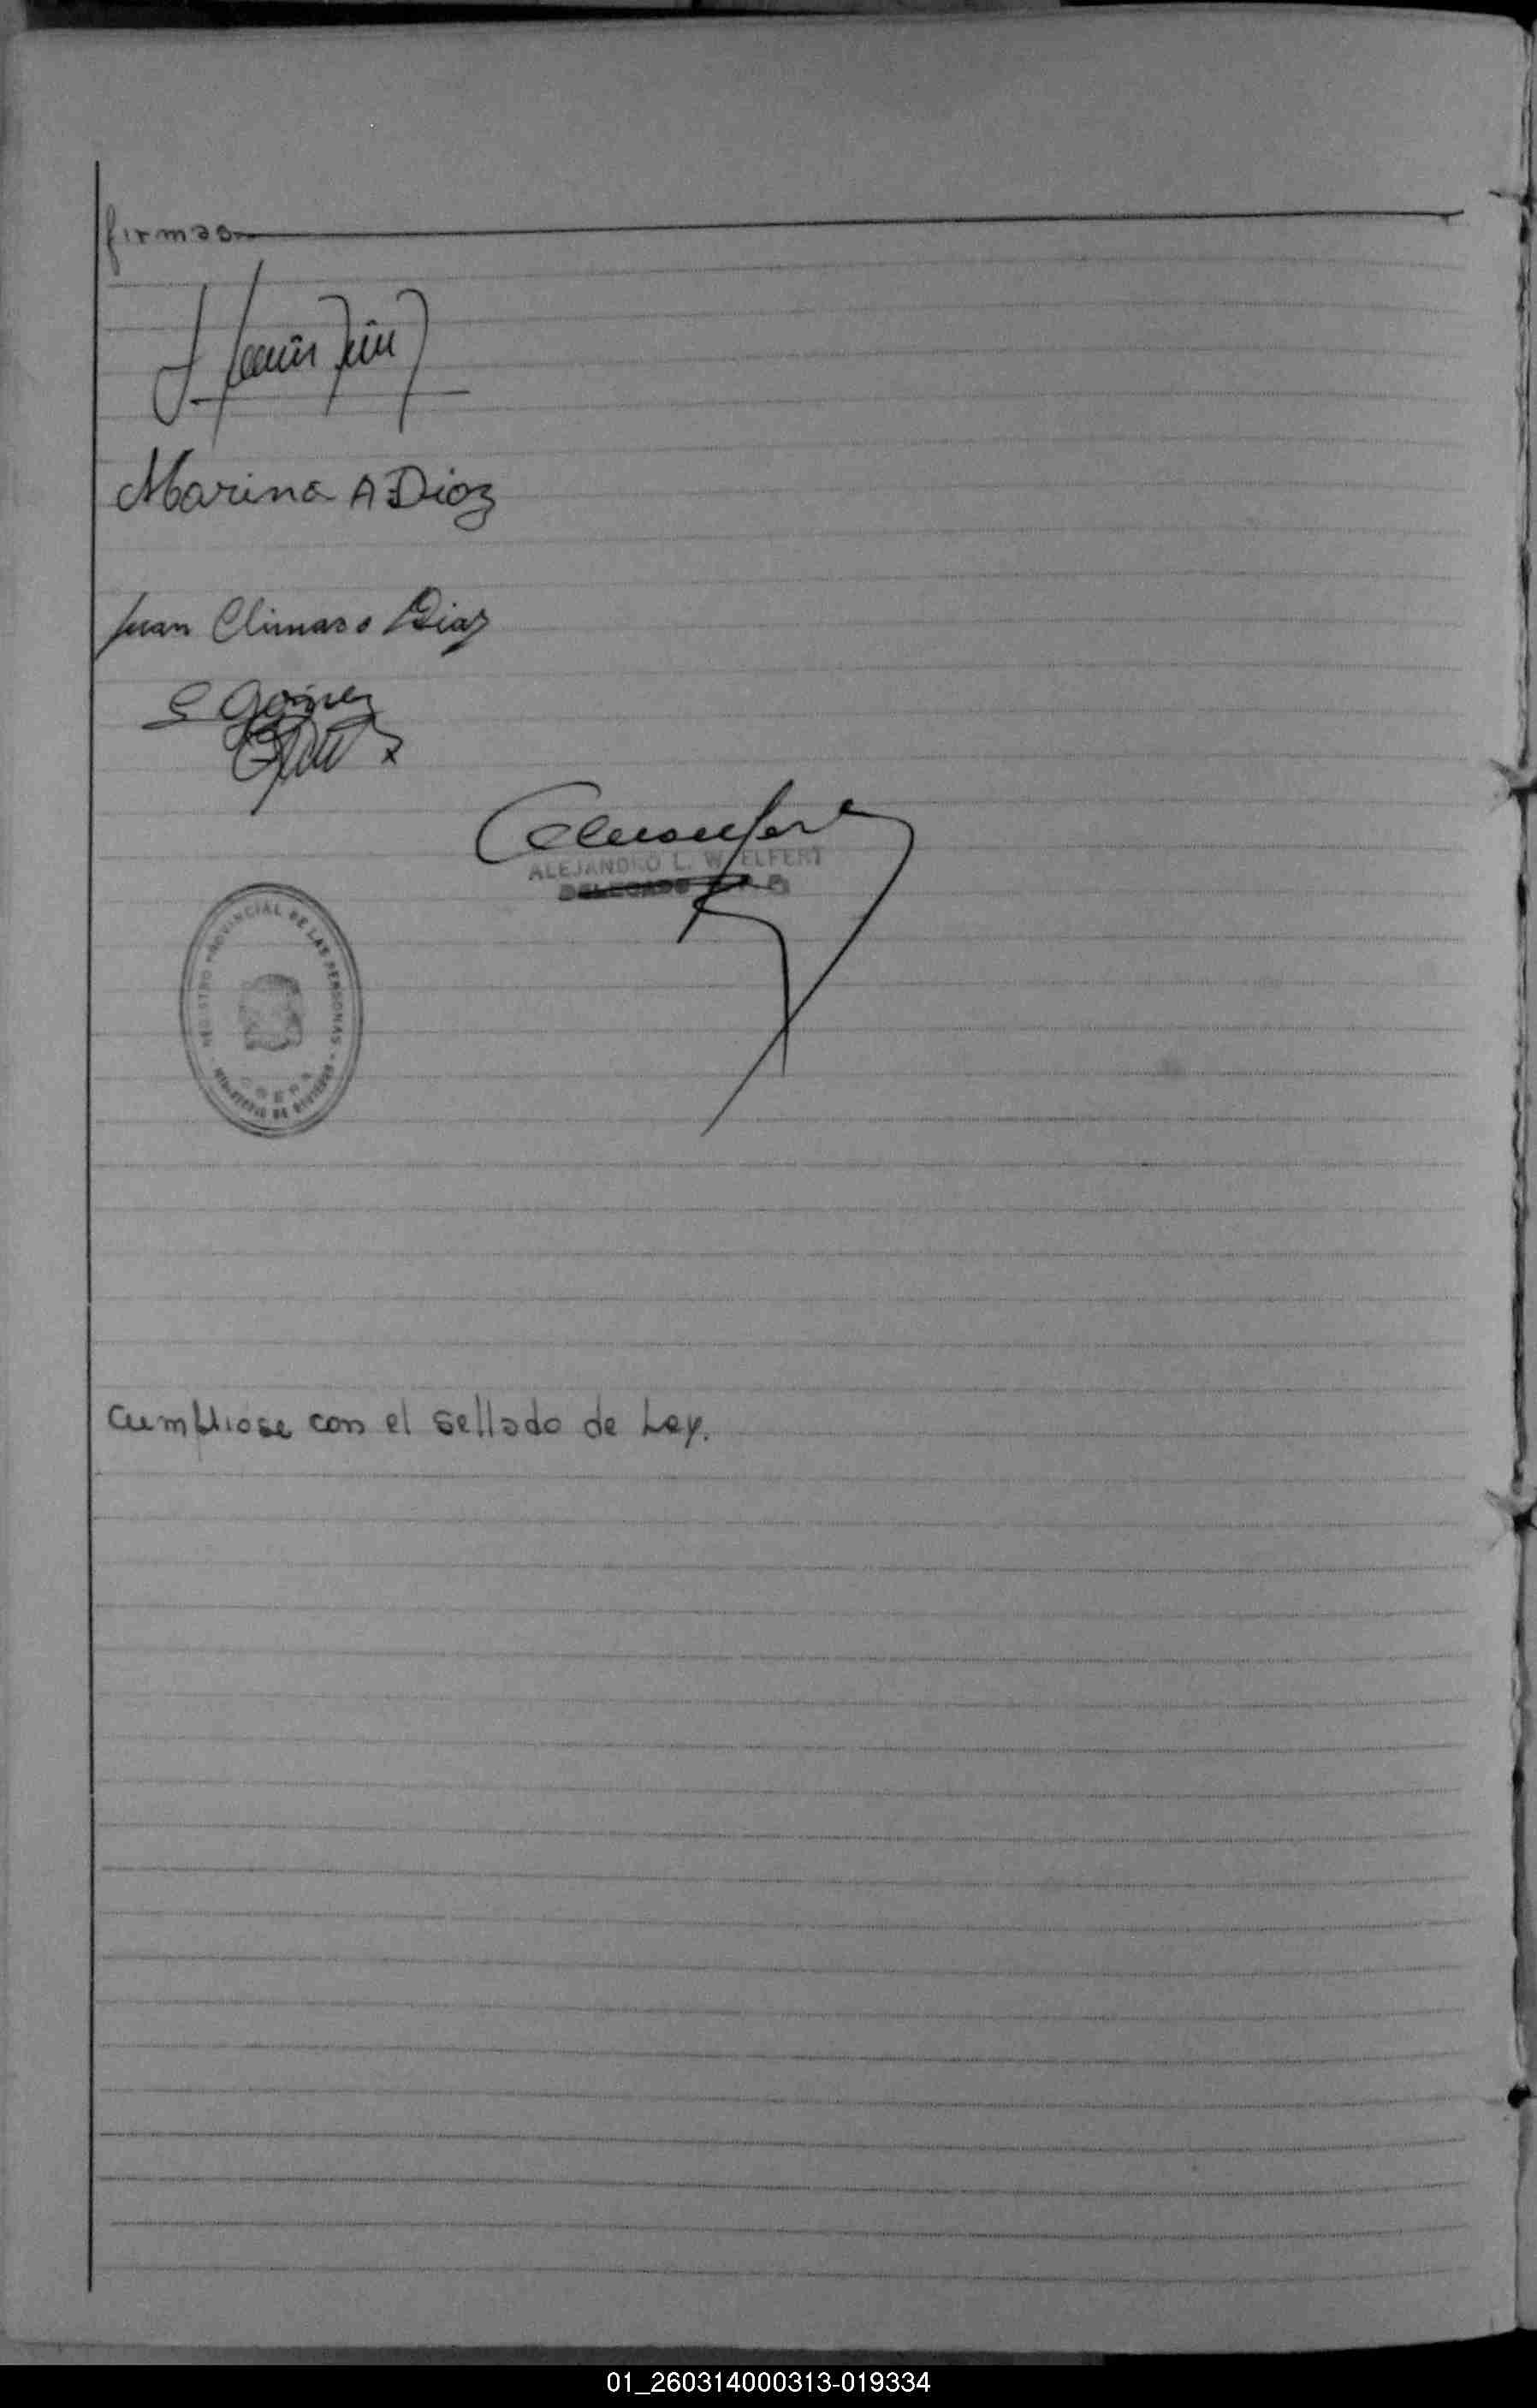 firmas
Marina A Diaz
Juan Climaso Diaz
S Gomez
ALEJANDRO L. WELFERT
DELEGADO
REGISTRO PROVINCIAL DE LAS PERSONAS
OBERA
MINISTERIO DE GOBIERNO
Cumpliose con el sellado de Ley.
01_260314000313-019334